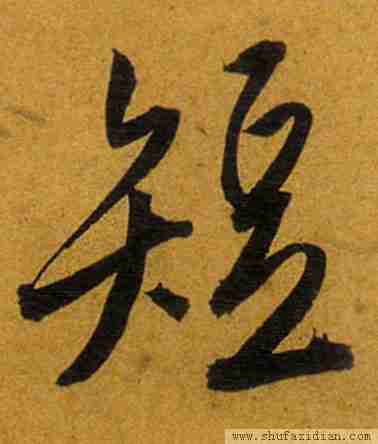 短
www.shufazidian.com